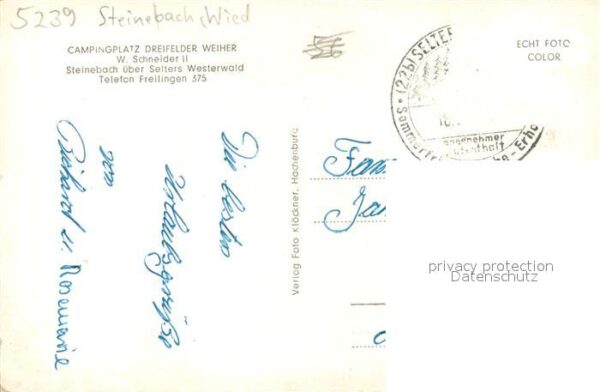 5239 Steinebach, Wied
CAMPINGPLATZ DREIFELDER WEIHER
W. Schneider II
Steinebach über Selters Westerwald
Telefon Freilingen 375
56
ECHT FOTO
COLOR
(22b) SELTER
18.
angenehmer
Sommerfri
Erho
Die besten
Urlaubsgrüße
von
Richard u. Rosemarie
Verlag Foto Klöckner, Hachenburg
Fam
Jan
privacy protection
Datenschutz